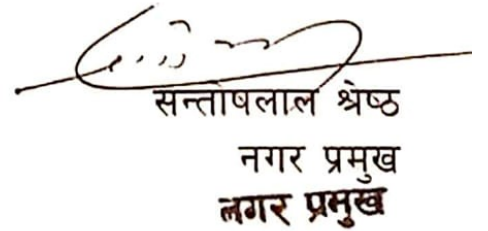 सन्तोषलाल श्रेष्ठ
नगर प्रमुख
नगर प्रमुख